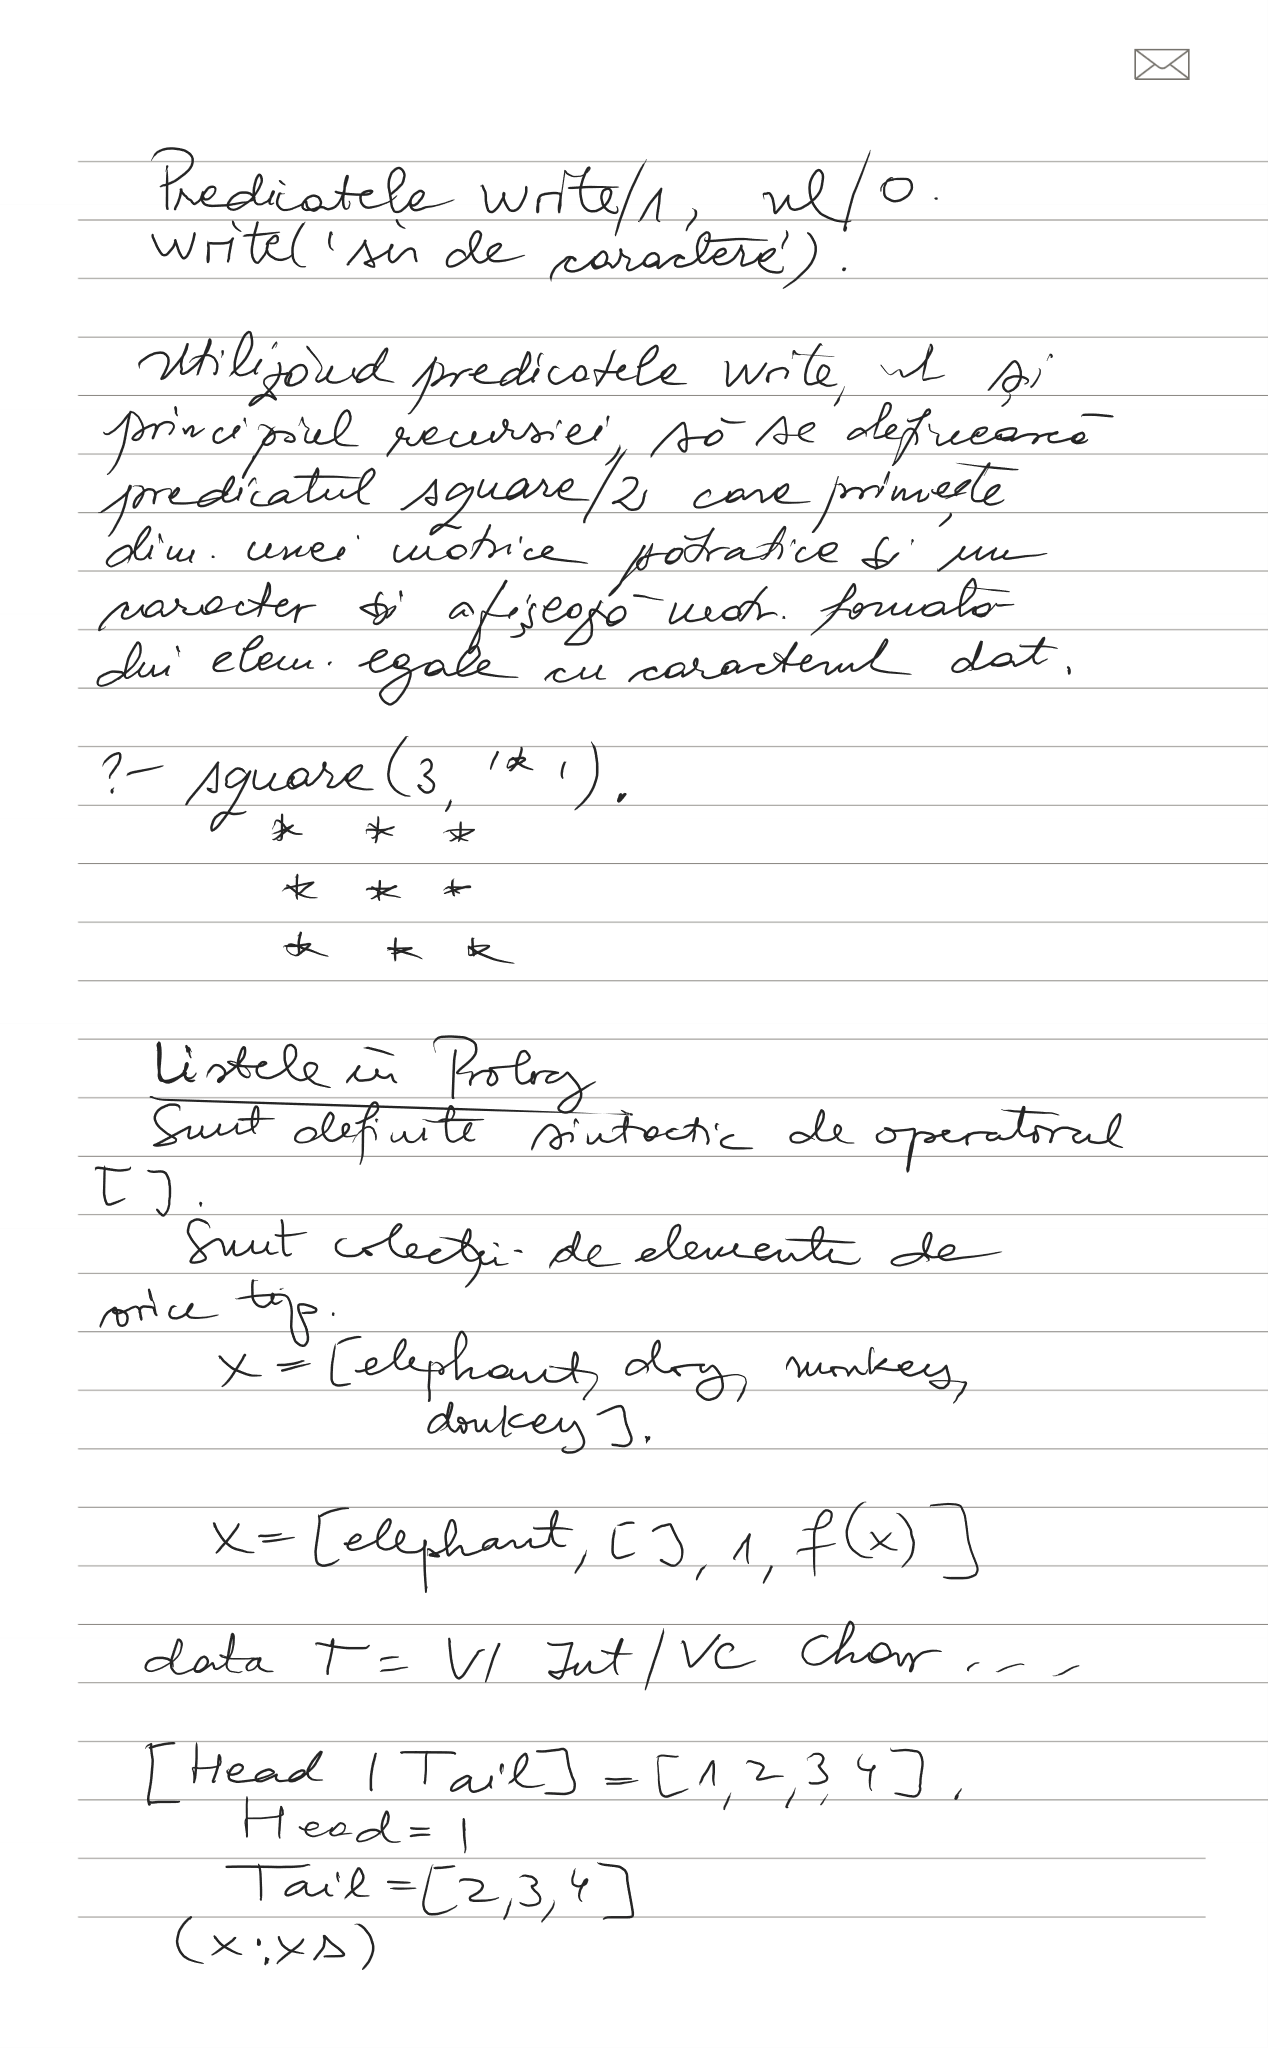 Predicatele write/1, nl/0.
write('sir de caractere').
Utilizând predicatele write, nl și
principiul recursiei, să se definească
predicatul square/2, care primește
dim. unei matrice pătratice și un
caracter și afișează matr. formată
din elem. egale cu caracterul dat.
?- square(3, '*').
* * *
* * *
* * *
Listele în Prolog
Sunt definite sintactic de operatorul
[].
Sunt colecții de elemente de
orice tip.
X = [elephant, dog, monkey,
donkey].
X = [elephant, [], 1, f(x)]
data T = VI Int | VC Char ...
[Head | Tail] = [1, 2, 3, 4].
Head = 1
Tail = [2, 3, 4]
(x:xs)